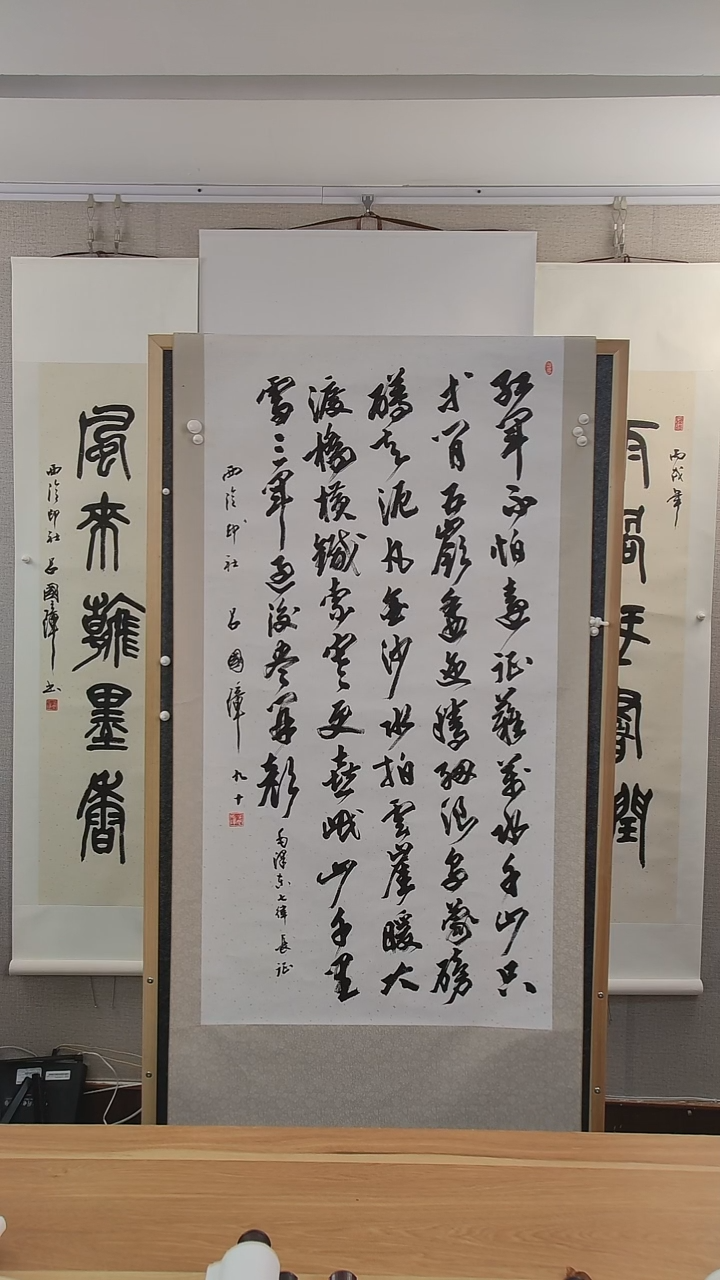 丙戌年
雨過琴書潤
紅軍不怕遠征難萬水千山只
等閑五嶺逶迤騰細浪烏蒙磅
礴走泥丸金沙水拍雲崖暖大
渡橋橫鐵索寒更喜岷山千里
雪三軍過後盡開顏
毛澤東七律長征
西泠印社 呂國璋 九十
風來翰墨香
西泠印社呂國璋書